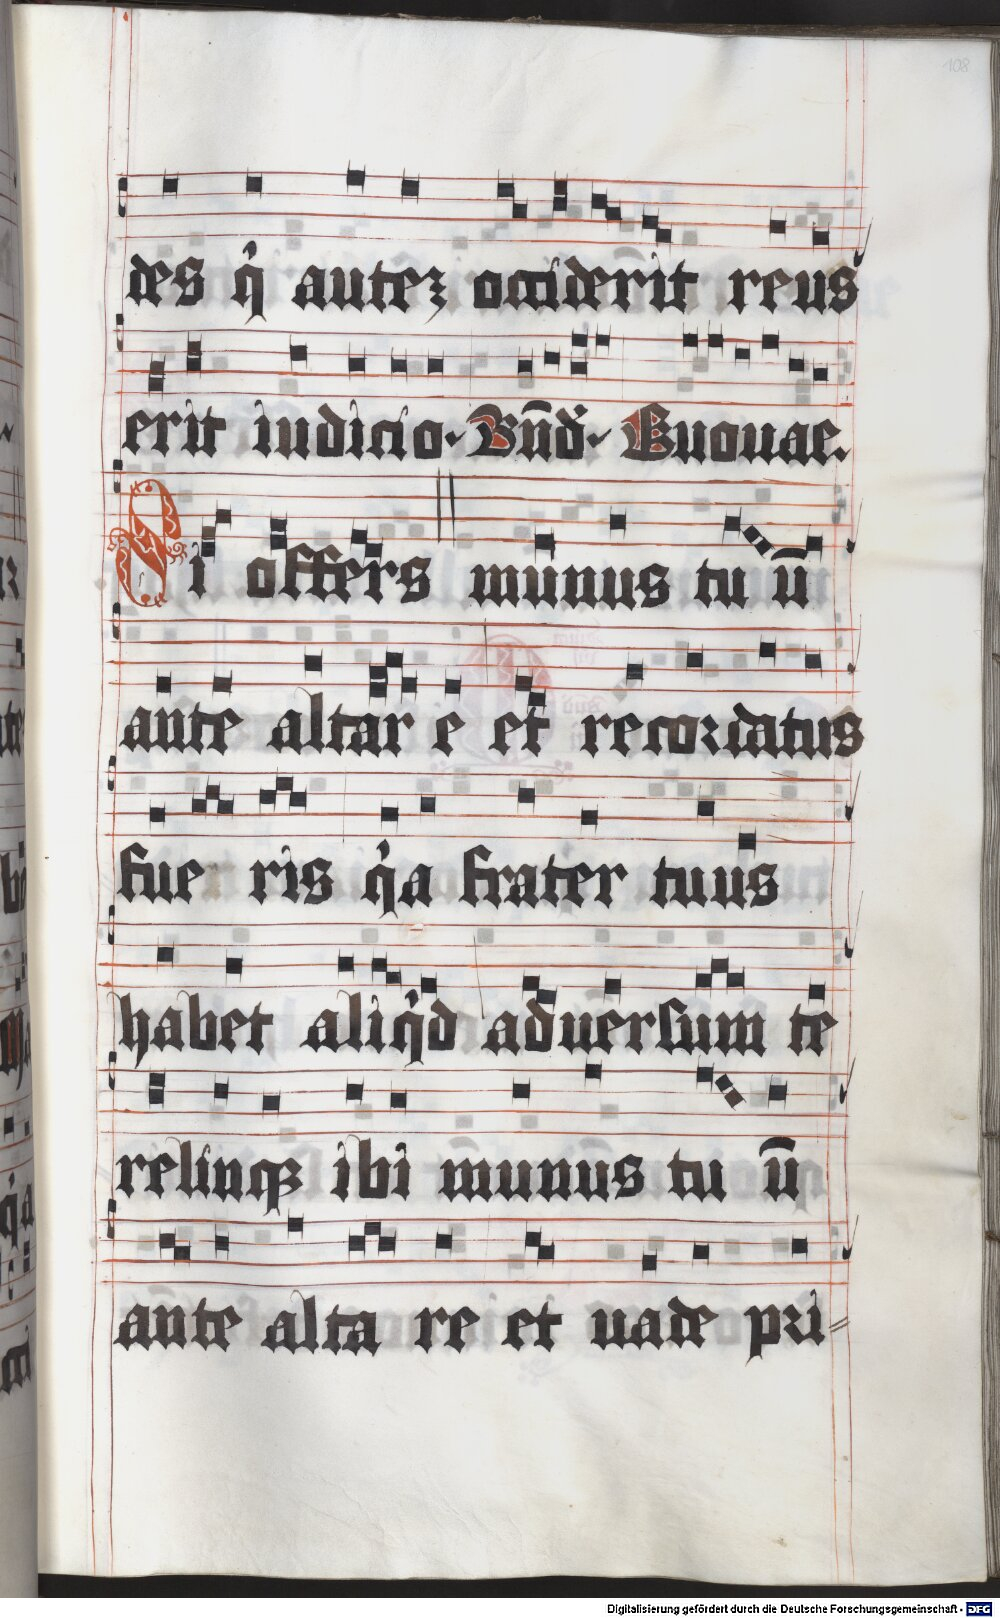 108
des q̇ autez occiderit reus
erit iudicio Bn̄d̄ Euouae.
Si offers munus tu ū
ante altar e et recordatus
fue ris q̇a frater tuus
habet aliq̇d aduersum te
relinqꝫ ibi munus tu ū
ante alta re et uade pri⸗
Digitalisierung gefördert durch die Deutsche Forschungsgemeinschaft - DFG